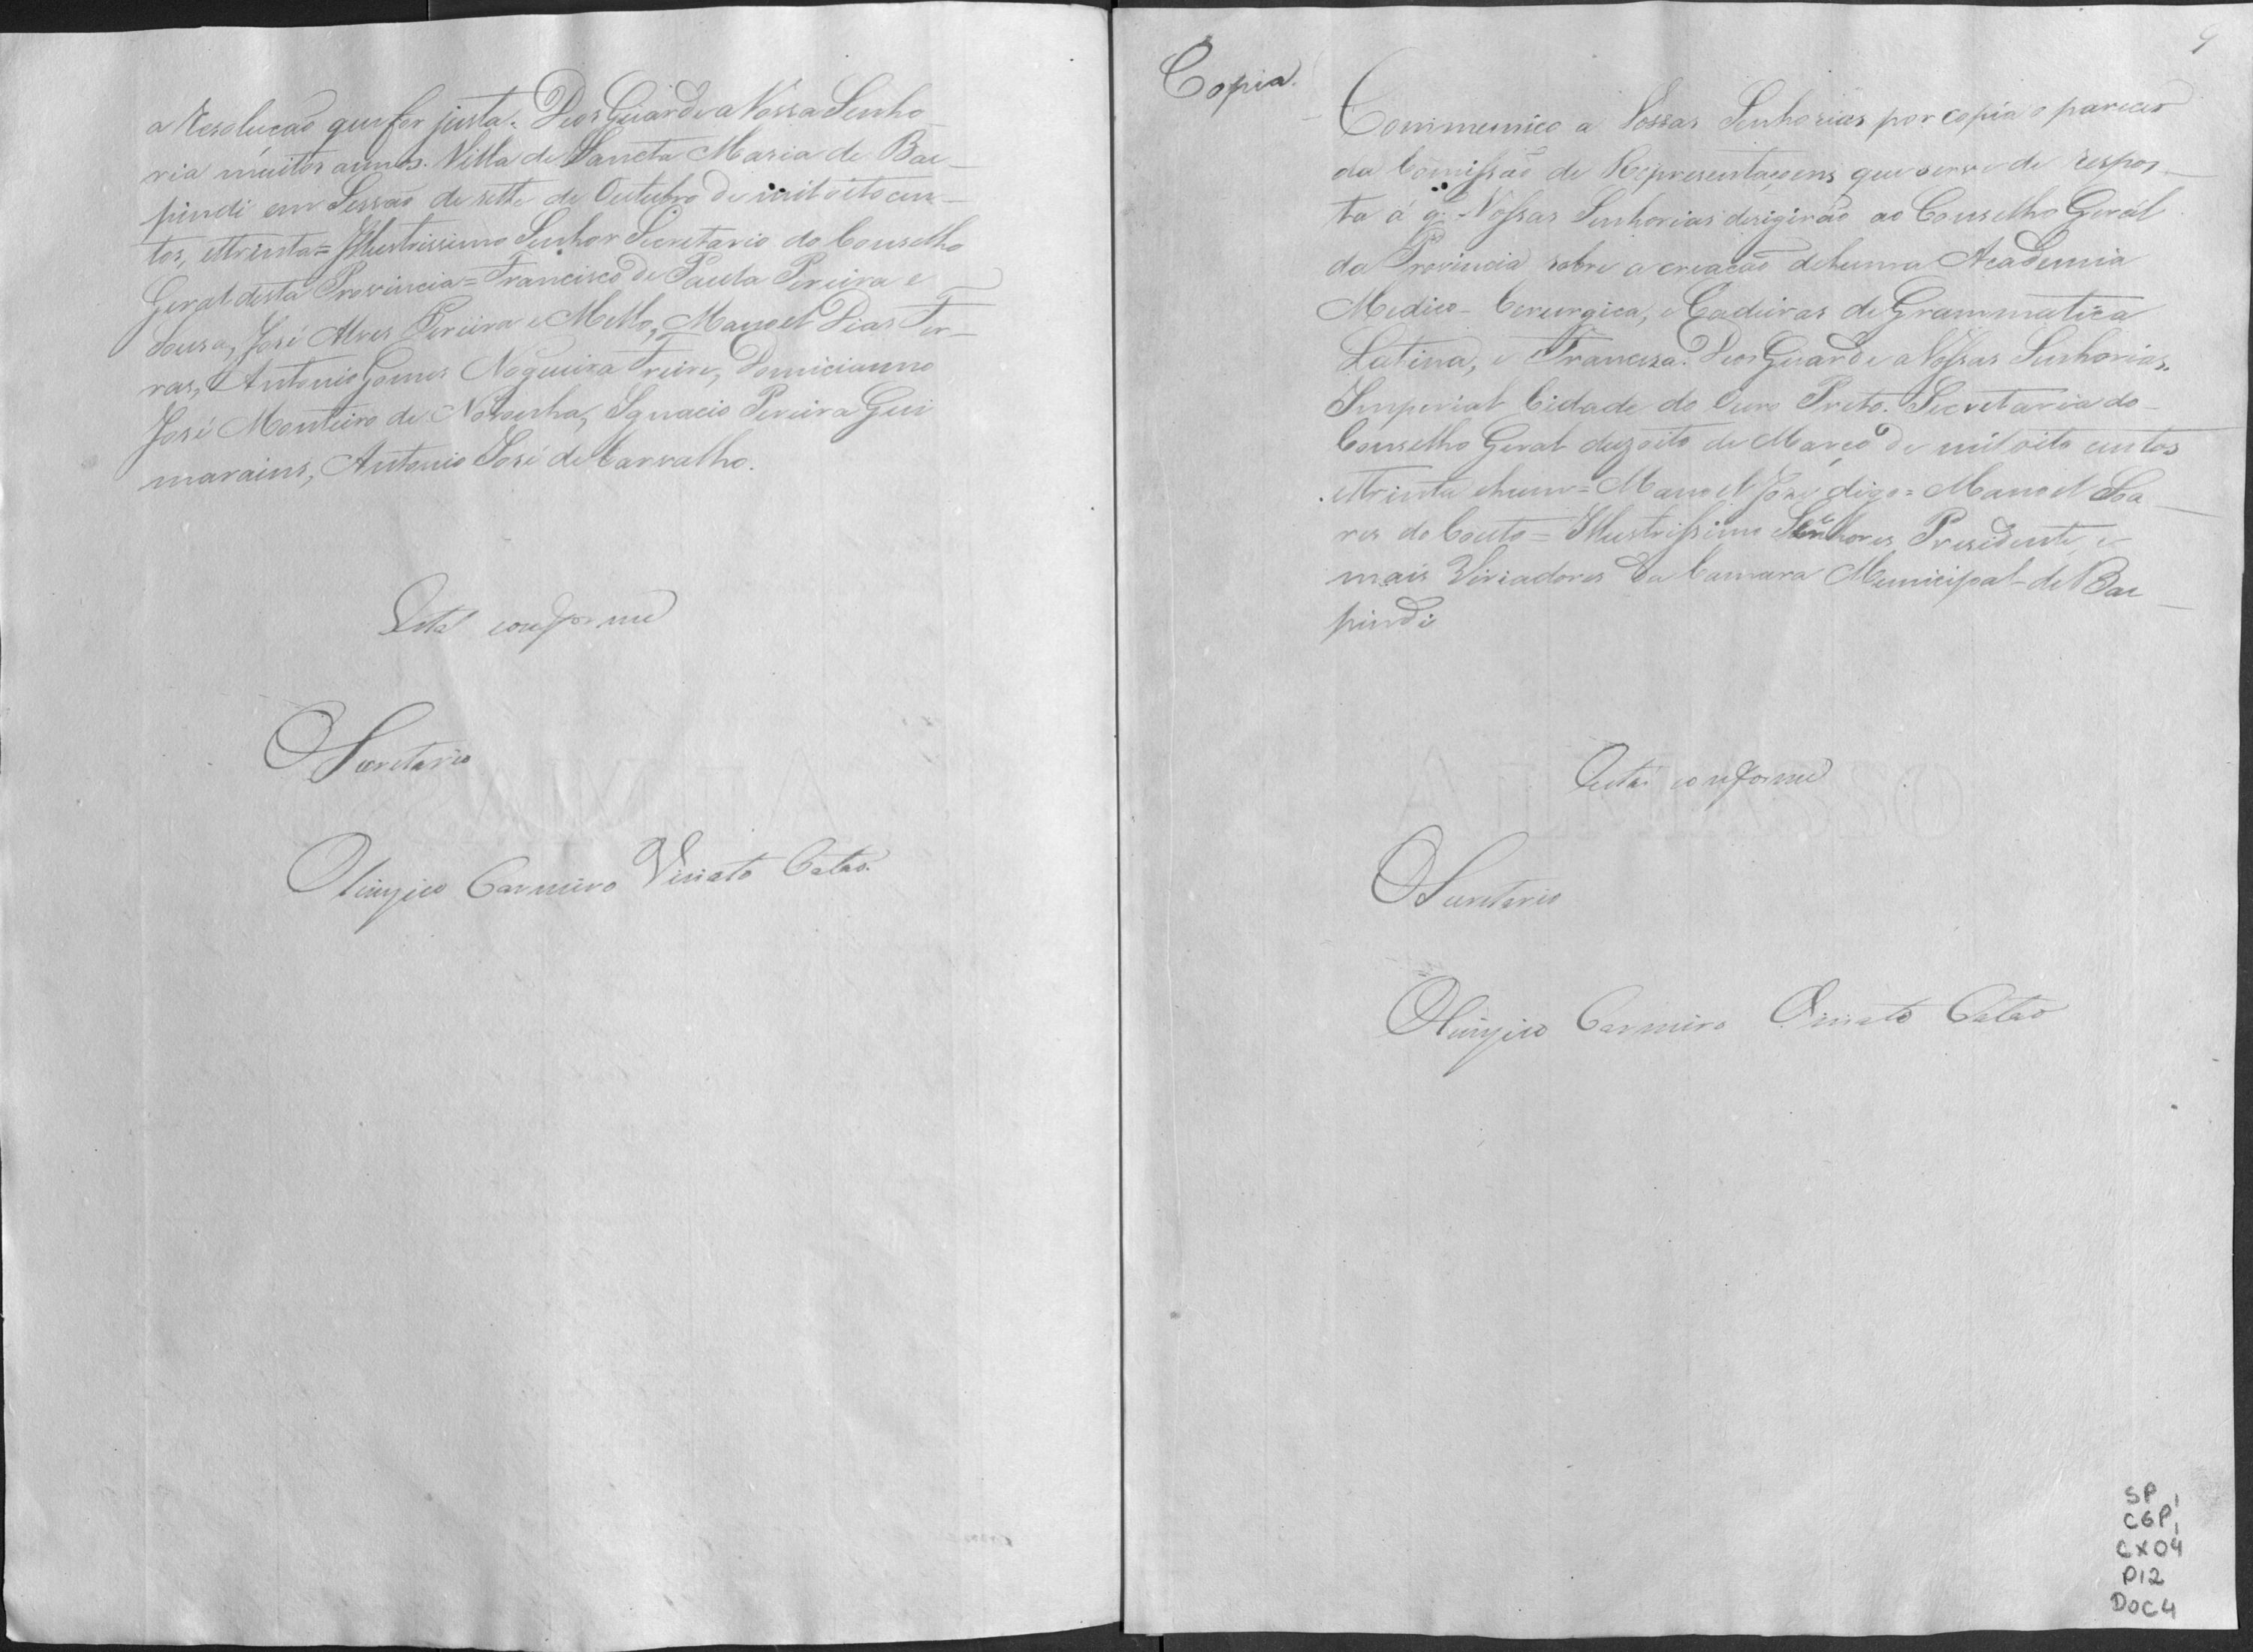 a Resolução que for justa. Deos Guarde a Vossa Senho-
ria muitos annos. Villa de Sancta Maria de Bae-
pindi em Sessão de sette de Outubro de mil oito cen-
tos, etrinta = Illustrissimo Senhor Secretario do Conselho
Geral desta Provincia = Francisco de Paula Pereira e
Sousa, José Alves Pereira e Mello, Manoel Dias Fer-
ras, Antonio Gomes Nogueira Freire, Domicianno
José Monteiro de Noronha, Ignacio Pereira Gui
marains, Antonio José de Carvalho.
Está conforme
O Secretario
Olimpico Carneiro Viriato Catão.
9
Copia.
Communico a Vossas Senhorias por copia o parecer
da Comissão de Representaçoens que serve de respos-
ta á q. Vossas Senhorias derigirão ao Conselho Geral
da Provincia sobre a creação dehuma Academia
Medico-Cerurgica, e Cadeiras de Grammatica
Latina, e Franceza. Deos Guarde a Vossas Senhorias.
Imperial Cidade do Ouro Preto. Secretaria do
Conselho Geral dezoito de Março de mil oito centos
etrinta ehum = Manoel José digo = Manoel Soa-
res do Couto = Illustrissimo Senhores Presidente, e
mais Viriadores da Camara Municipal de Bae-
pindi
Está conforme
O Secretario
Olimpico Carneiro Viriato Catão
SP
CGP1
CX04
P12
DOC4